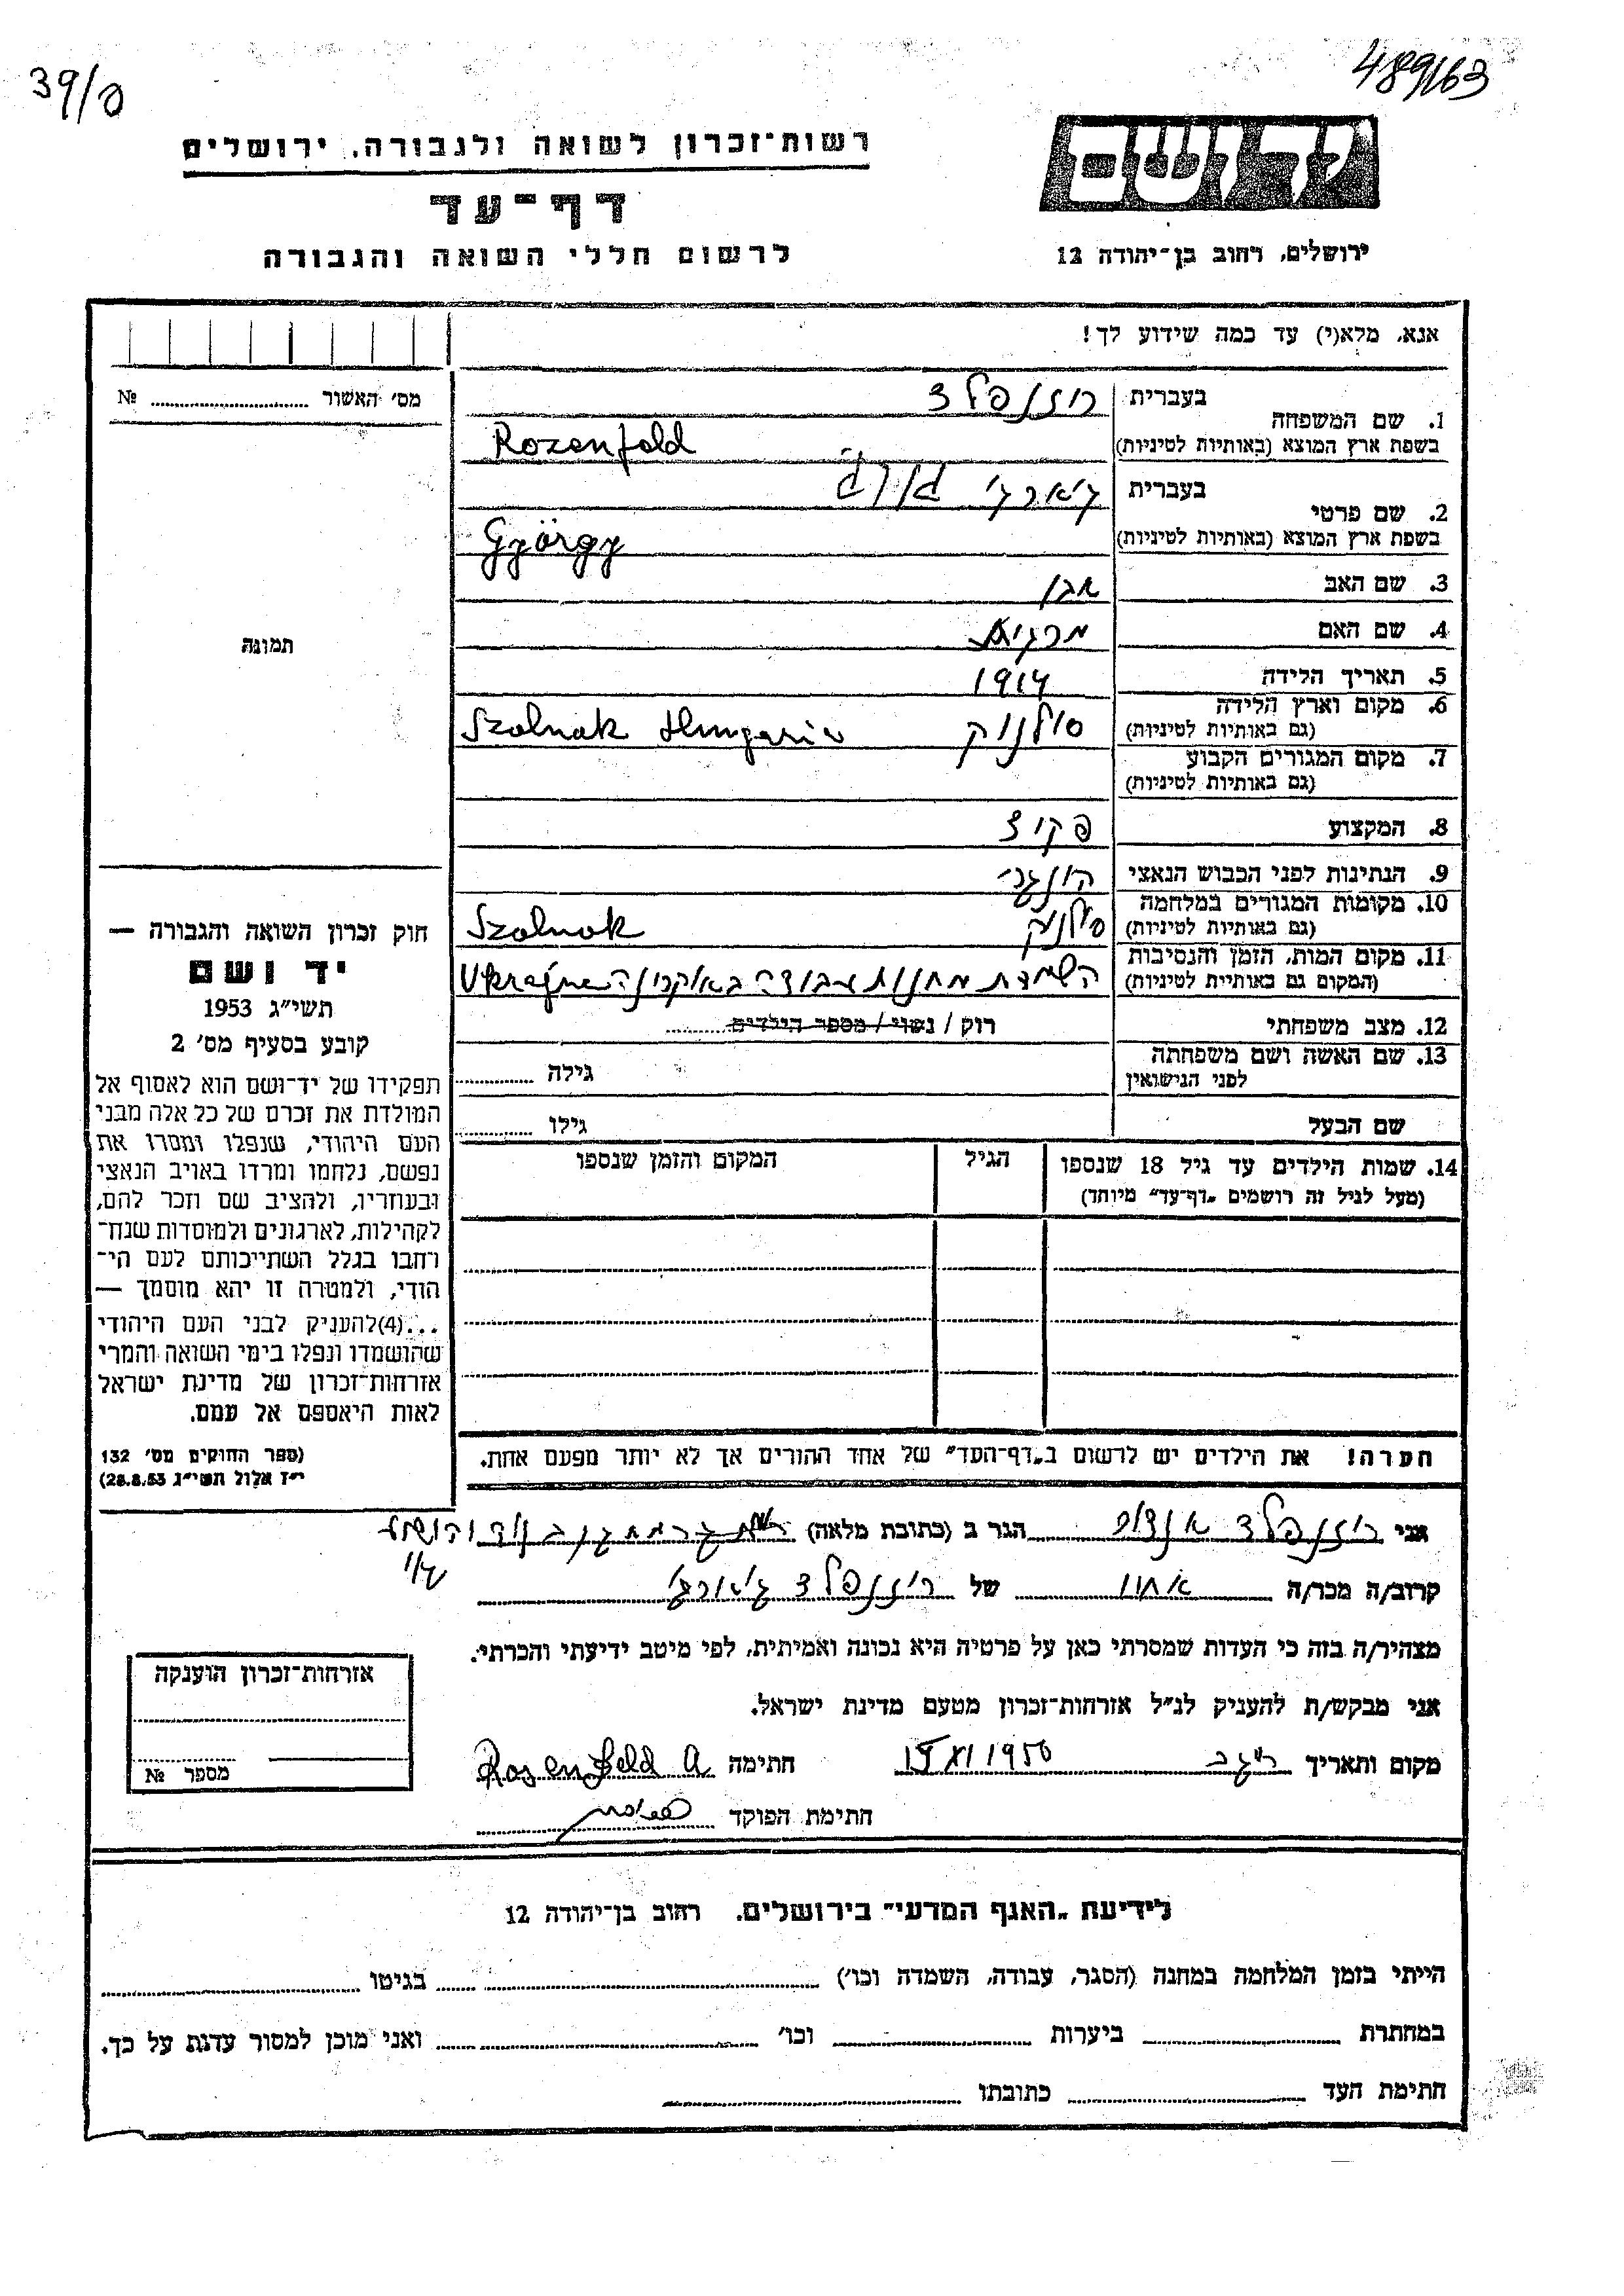 39/פ
489/63
רשות־זכרון לשואה ולגבורה, ירושלים
דף־עד
לרשום חללי השואה והגבורה
יד ושם
ירושלים, רחוב בן־יהודה 12
אנא, מלא(י) עד כמה שידוע לך!
מס׳ האשור № 
1. שם המשפחה
בעברית רוזנפלד
בשפת ארץ המוצא (באותיות לטיניות) Rozenfeld
2. שם פרטי
בעברית ג׳ארג׳
בשפת ארץ המוצא (באותיות לטיניות) György
3. שם האב
4. שם האם מרגיט
5. תאריך הלידה 1914
6. מקום וארץ הלידה
(גם באותיות לטיניות) סולנוק Szolnok Hungaria
7. מקום המגורים הקבוע
(גם באותיות לטיניות)
8. המקצוע פקיד
9. הנתינות לפני הכבוש הנאצי הונגרי
10. מקומות המגורים במלחמה
(גם באותיות לטיניות) סולנוק Szolnok
11. מקום המות, הזמן והנסיבות
(המקום גם באותיית לטיניות) השמדת מחנות עבודה באוקרינה Ukrajna
12. מצב משפחתי רוק / נשוי / מספר הילדים
13. שם האשה ושם משפחתה
לפני הנישואין גילה
שם הבעל גילו
14. שמות הילדים עד גיל 18 שנספו
(מעל לגיל זה רושמים „דף־עד״ מיוחד)
הגיל
המקום והזמן שנספו
הערה! את הילדים יש לרשום ב„דף־העד״ של אחד ההורים אך לא יותר מפעם אחת.
תמונה
חוק זכרון השואה והגבורה —
יד ושם
תשי״ג 1953
קובע בסעיף מס׳ 2
תפקידו של יד־ושם הוא לאסוף אל
המולדת את זכרם של כל אלה מבני
העם היהודי, שנפלו ומסרו את
נפשם, נלחמו ומרדו באויב הנאצי
ובעוזריו, ולהציב שם וזכר להם,
לקהילות, לארגונים ולמוסדות שנח־
רחבו בגלל השתייכותם לעם הי־
הודי, ולמטרה זו יהא מוסמך —
...(4)להעניק לבני העם היהודי
שהושמדו ונפלו בימי השואה והמרי
אזרחות־זכרון של מדינת ישראל
לאות היאספם אל עמם.
(ספר החוקים מס׳ 132
י״ז אלול תשי״ג 28.8.53)
אני רוזנפלד הגר ב (כתובת מלאה)
קרוב/ה מכר/ה אחיו של רוזנפלד ג׳ארג׳
מצהיר/ה בזה כי העדות שמסרתי כאן על פרטיה היא נכונה ואמיתית, לפי מיטב ידיעתי והכרתי.
אני מבקש/ת להעניק לנ״ל אזרחות־זכרון מטעם מדינת ישראל.
מקום ותאריך חתימה Rosenfeld A
חתימת הפוקד
אזרחות־זכרון הוענקה
מספר №
לידיעת „האגף המדעי״ בירושלים, רחוב בן־יהודה 12
הייתי בזמן המלחמה במחנה (הסגר, עבודה, השמדה וכו׳) בגיטו
במחתרת ביערות וכו׳ ואני מוכן למסור עדות על כך.
חתימת העד כתובתו